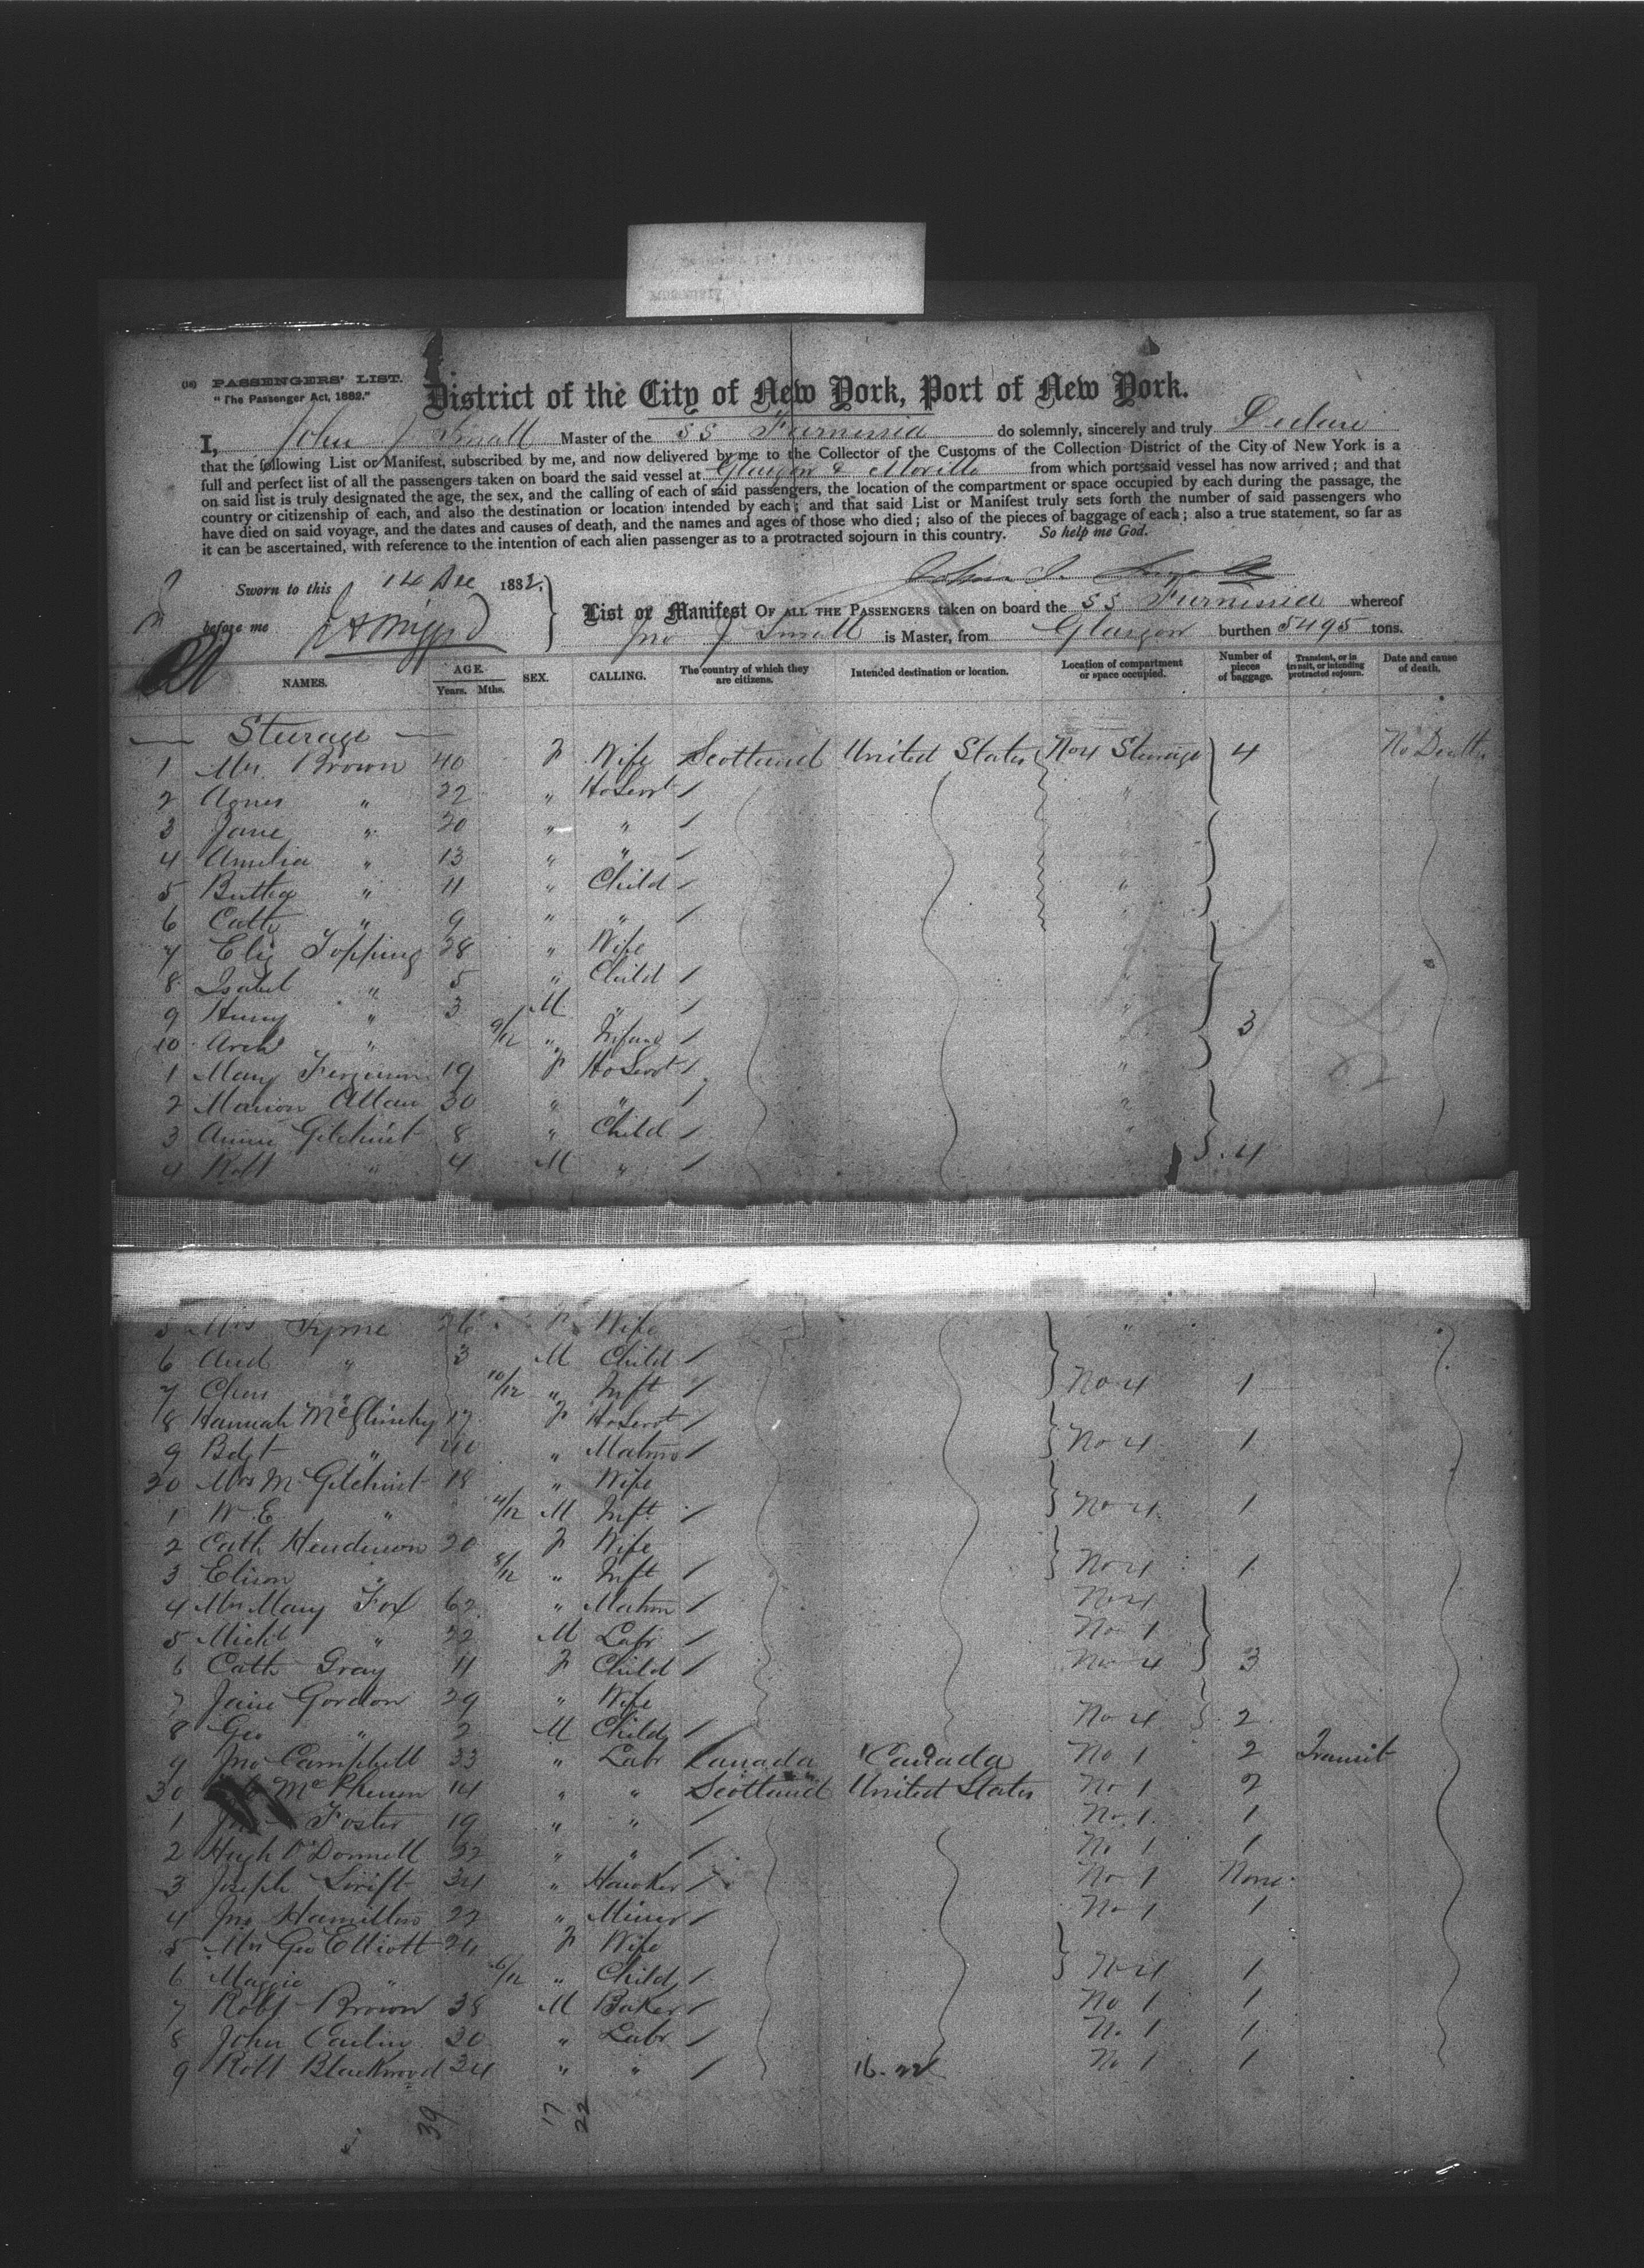 (18) PASSENGERS' LIST.
"The Passenger Act, 1882."
District of the City of New York, Port of New York.
I, John J Small Master of the SS Furnessia do solemnly, sincerely and truly Declare
that the following List or Manifest, subscribed by me, and now delivered by me to the Collector of the Customs of the Collection District of the City of New York is a
full and perfect list of all the passengers taken on board the said vessel at Glasgow & Moville from which ports said vessel has now arrived; and that
on said list is truly designated the age, the sex, and the calling of each of said passengers, the location of the compartment or space occupied by each during the passage, the
country or citizenship of each, and also the destination or location intended by each; and that said List or Manifest truly sets forth the number of said passengers who
have died on said voyage, and the dates and causes of death, and the names and ages of those who died; also of the pieces of baggage of each; also a true statement, so far as
it can be ascertained, with reference to the intention of each alien passenger as to a protracted sojourn in this country. So help me God.
Sworn to this 14 Dec 1882.
John J. Small
before me
List or Manifest OF ALL THE PASSENGERS taken on board the SS Furnessia whereof
Jno J Small is Master, from Glasgow burthen 5495 tons.
NAMES. AGE. Years. Mths. SEX. CALLING. The country of which they are citizens. Intended destination or location. Location of compartment or space occupied. Number of pieces of baggage. Transient, or in transit, or intending protracted sojourn. Date and cause of death.
Steerage
1 Mrs. Brown 40 F Wife Scotland United States No 4 Steerage 4 No Deaths
2 Agnes " 22 " HoServt /
3 Jane " 20 " " /
4 Amelia " 13 " " /
5 " 11 " Child /
6 Cath " 9 " " /
7 Eliz Topping 28 " Wife
8 Isabel " 5 " Child /
9 Henry " 3 M " /
10 Arch " 9/12 " Infant / 3
1 Mary Ferguson 19 F HoServt /
2 Marion Allan 30 " " /
3 Annie Gilchrist 8 " Child /
4 Robt " 4 M " / 4
5 Mrs 26 F Wife
6 And " 3 M Child /
7 Chas " 10/12 " Inft / No 4 1
8 Hannah 17 F HoServt /
9 Bdgt " " Matron / No 4 1
20 Mrs M Gilchrist 18 " Wife
1 W E " 4/12 M Inft / No 4 1
2 Cath Henderson 20 F Wife
3 Elison " 8/12 " Inft / No 4 1
4 Mrs Mary Fox 62 " Matron / No 4
5 Michl " 22 M Labr / No 1
6 Cath Gray 11 F Child / No 4 3
7 Jane Gordon 29 " Wife
8 Geo " 2 M Child / No 4 2
9 Jno Campbell 33 " Labr Canada Canada No 1 2 Transit
30 McPherson 14 " " Scotland United States No 1 2
1 Foster 19 " " / No 1 1
2 Hugh O'Donnell 32 " " / No 1 1
3 Joseph Swift 34 " Hawker / No 1 None
4 Jno Hamilton 22 " Miner / No 1 1
5 Mrs Geo Elliott 24 F Wife
6 Maggie " 6/12 " Child / No 4 1
7 Robt Brown 38 M Baker / No 1 1
8 John Carlin 20 " Labr / No 1 1
9 Robt Blackwood 34 " " / 16-22 No 1 1
39 17 22